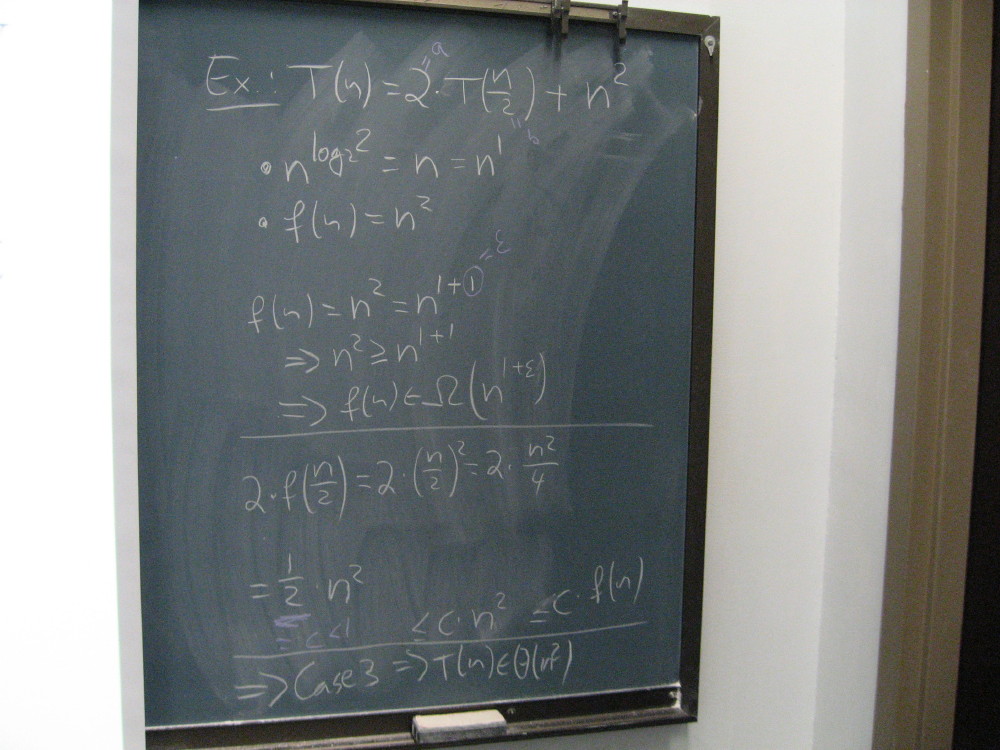 Ex.: T(n) = 2 · T(n/2) + n²
= a
= b
• n^(log₂ 2) = n = n¹
• f(n) = n²
= ε
f(n) = n² = n^(1+①)
⇒ n² ≥ n^(1+1)
⇒ f(n) ∈ Ω(n^(1+ε))
2 · f(n/2) = 2 · (n/2)² = 2 · n²/4
= 1/2 · n²
= c < 1 ≤ c · n² ≤ c · f(n)
⇒ Case 3 ⇒ T(n) ∈ Θ(n²)